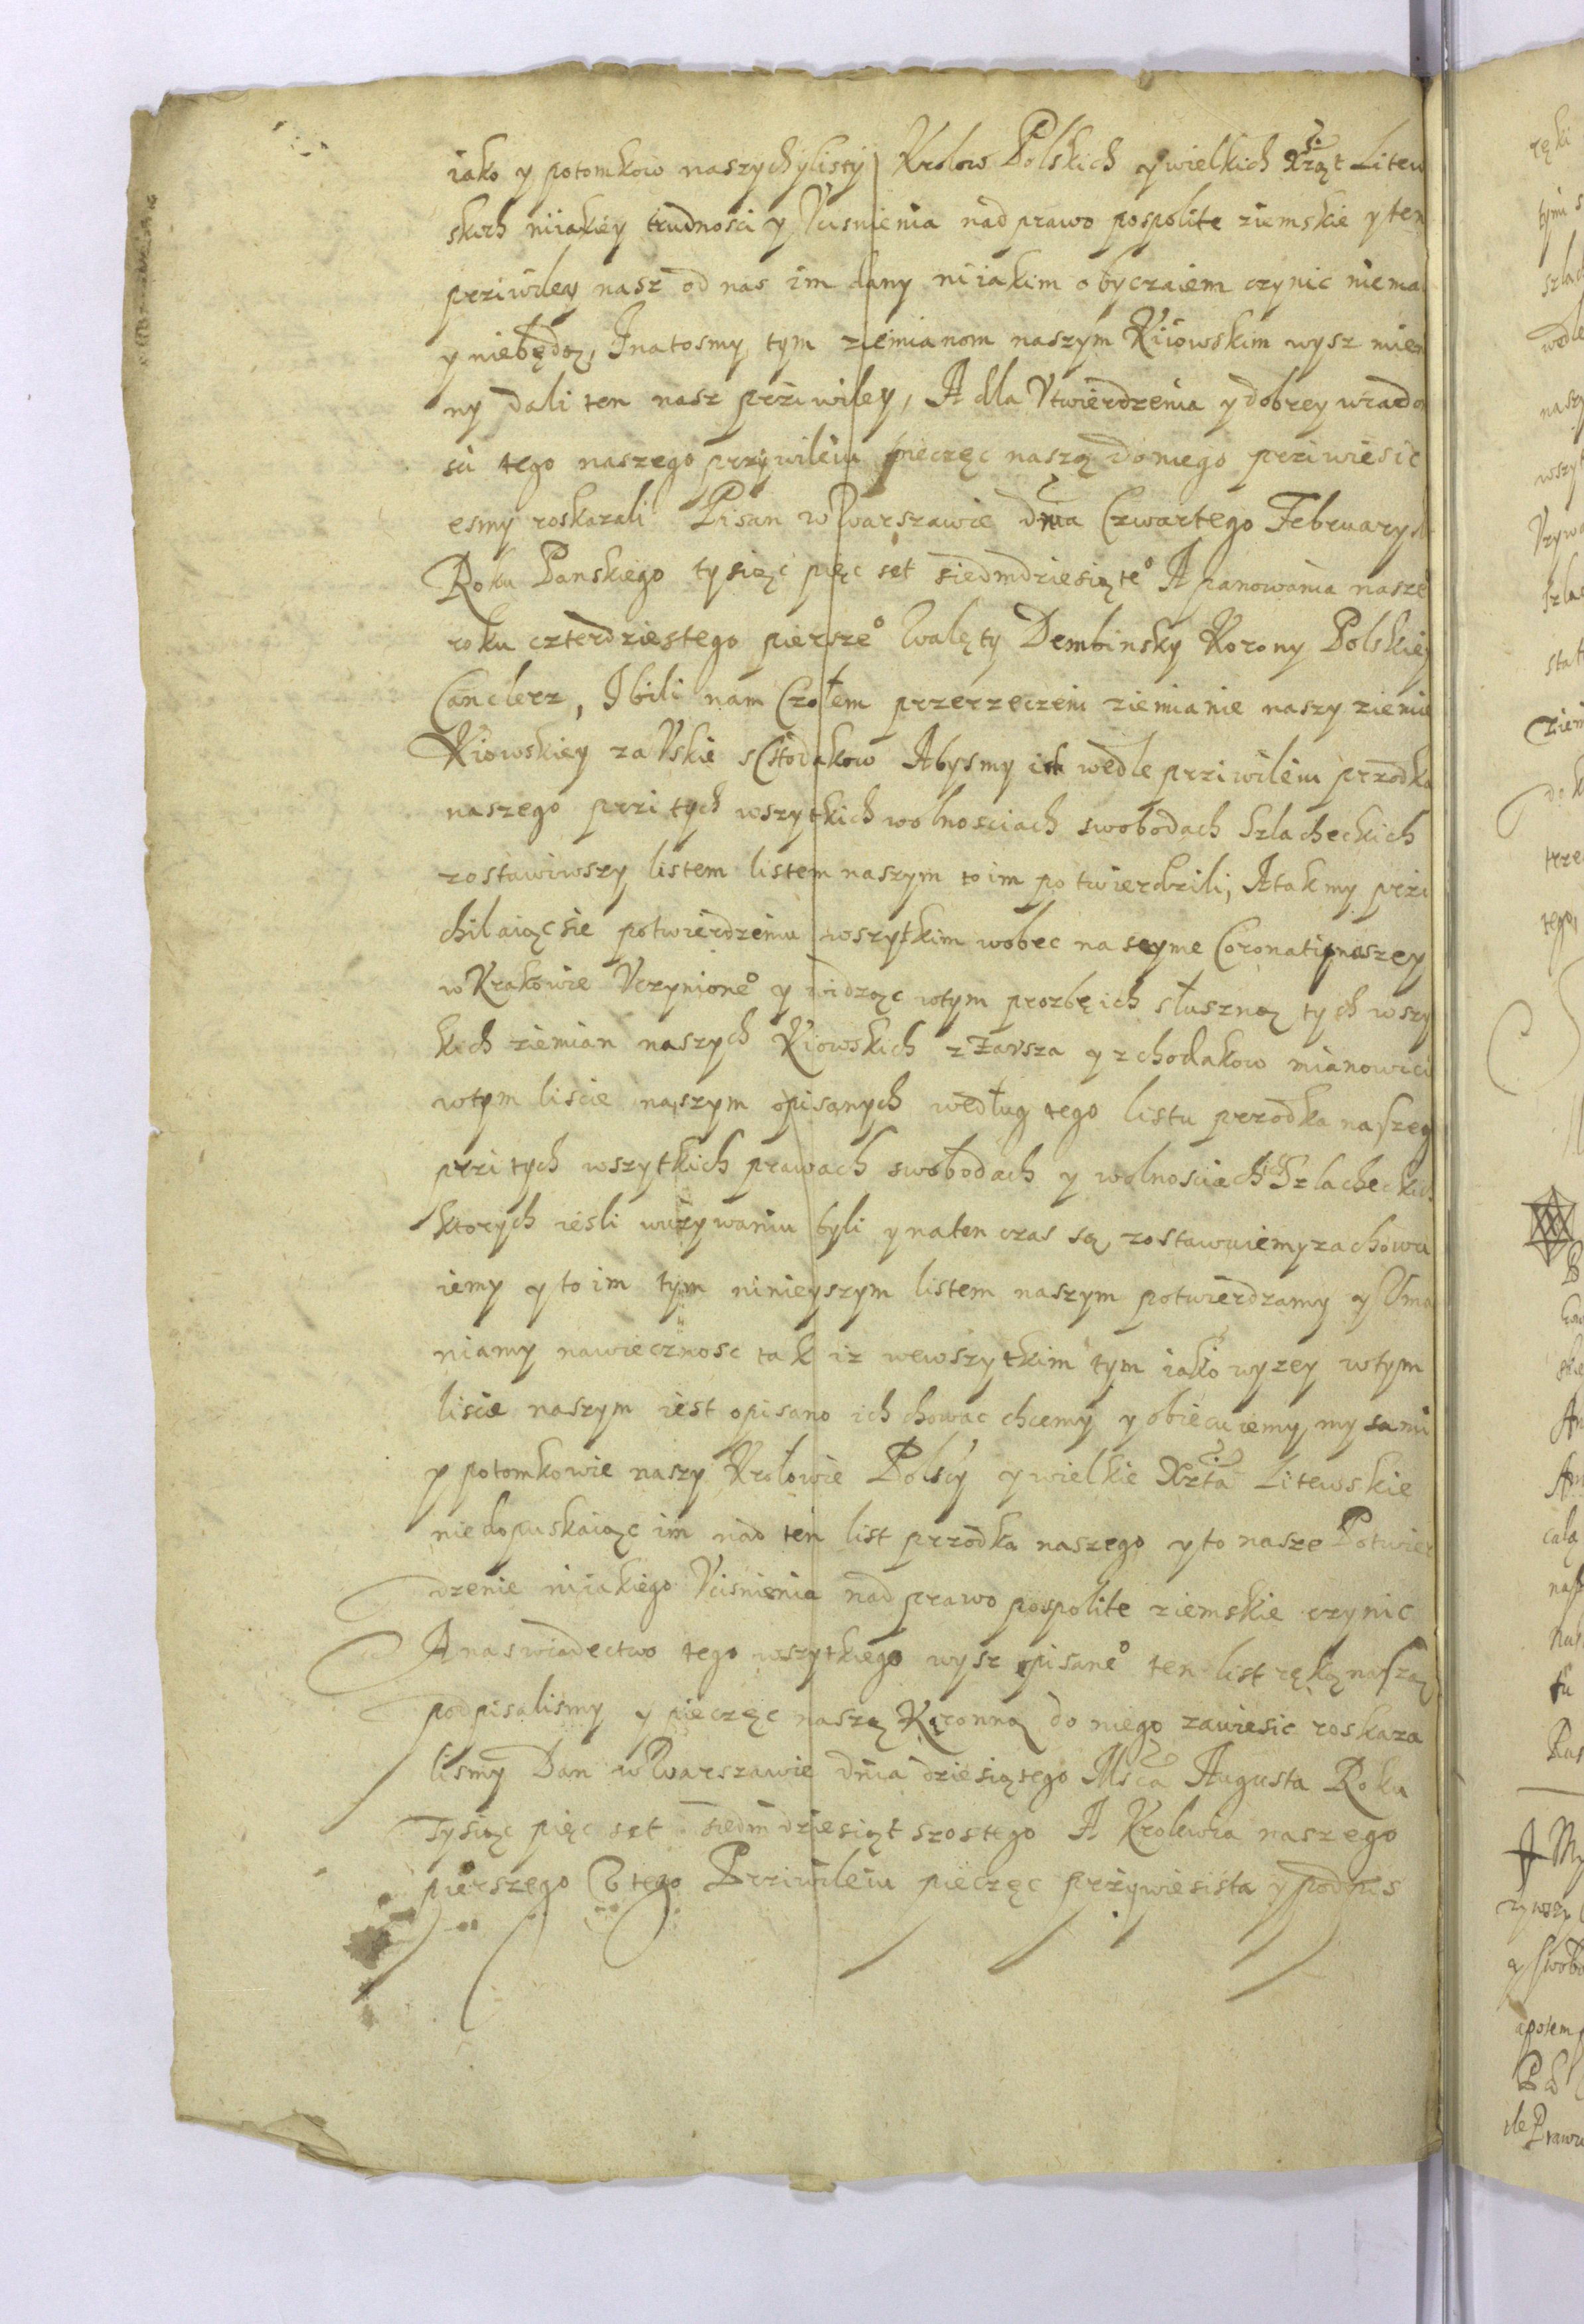 iako y potomkow naszych ylisty Krolow Polskich y wielkich Xząt Litew
skich niiakiey trudnosci y Vcisnienia nad prawo pospolite ziemskie y ten
prziwiley nasz od nas im dany niiakim obyczaiem czynic niema
y niebędą, Inatosmy tym ziemianom naszym Kiiowskim wysz mien
ny dali ten nasz prziwiley, A dla Vtwierdzenia y dobrey wiardo
sci tego naszego przywileiu pieczęc naszą doniego prziwiesic
esmy roskazali Pisan w Warszawie dnia Czwartego February
Roku Panskiego tysiąc pięc set siedmdziesiąte° A panowania nasze
roku czterdziestego piersze° Walęty Dembinsky Korony Polskiey
Canclerz, Ibili nam Czołem przerzeczeni ziemianie naszy ziemie
Kiowskiey za Vskie s Chodakow Abysmy ich wedle prziwileiu przodka
naszego przi tych wszytkich wolnosciach swobodach Szlacheckich
zostawiwszy listem listem naszym to im potwierdzili, Atak my przi
chilaiąc sie potwierdzeniu wszytkim wobec na seyme Coronatij naszey
w Krakowie Vczynione° y widząc wtym prozbę ich słuszną tych wszy
kich ziemian naszych Kiowskich z Zavsza y z chodakow mianowici
wtym liscie naszym opisanych według tego listu przodka naszeg
przi tych wszytkich prawach swobodach y wolnosciach Szlacheckich
ktorych iesli wuzywaniu byli y naten czas są zostawuiemy zachowu
iemy y to im tym ninieyszym listem naszym potwierdzamy y Vma
niamy nawiecznosc tak iz wewszytkim tym iako wyzey wtym
liscie naszym iest opisano ich chowac chcemy y obiecuiemy my sami
y potomkowie naszy Krolowie Polscy y wielkie Xzta Litewskie
niedopuskaiąc im nad ten list przodka naszego y to nasze Potwier
dzenie niiakiego Vcisnienia nad prawo pospolite ziemskie czynic
A naswiadectwo tego wszytkiego wysz opisane° ten list ręką naszą
podpisalismy y pieczęc naszą Koronną do niego zawiesic roskaza
lismy Dan w Warszawie dnia dziesiątego Msca Augusta Roku
Tysiąc pięc set siedmdziesiąt szostego A Krolewia naszego
pierszego V tego Prziwileiu pieczęc przywiesista y podpis